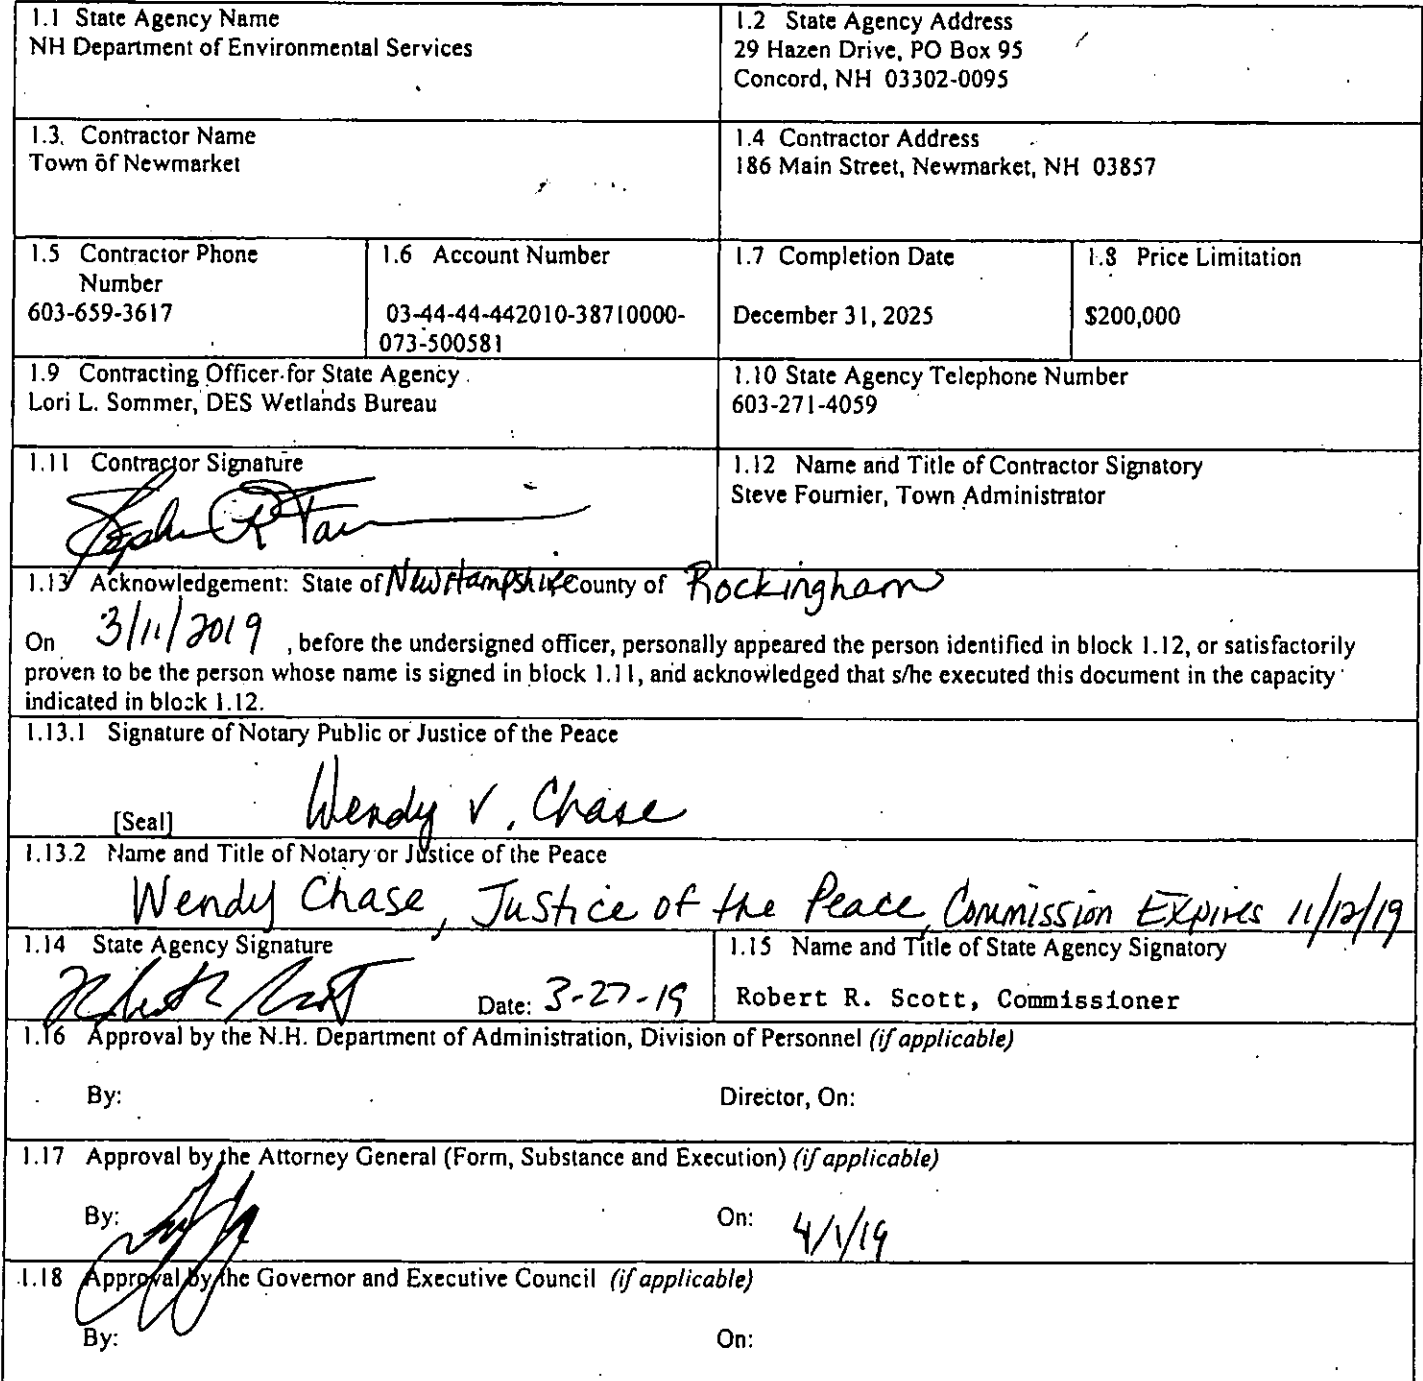 1.1 State Agency Name
NH Department of Environmental Services
1.2 State Agency Address
29 Hazen Drive, PO Box 95
Concord, NH 03302-0095
1.3. Contractor Name
Town of Newmarket
1.4 Contractor Address
186 Main Street, Newmarket, NH 03857
1.5 Contractor Phone
Number
603-659-3617
1.6 Account Number
03-44-44-442010-38710000-
073-500581
1.7 Completion Date
December 31, 2025
1.8 Price Limitation
$200,000
1.9 Contracting Officer for State Agency
Lori L. Sommer, DES Wetlands Bureau
1.10 State Agency Telephone Number
603-271-4059
1.11 Contractor Signature
1.12 Name and Title of Contractor Signatory
Steve Fournier, Town Administrator
1.13 Acknowledgement: State of New Hampshire County of Rockingham
On 3/11/2019 , before the undersigned officer, personally appeared the person identified in block 1.12, or satisfactorily
proven to be the person whose name is signed in block 1.11, and acknowledged that s/he executed this document in the capacity
indicated in block 1.12.
1.13.1 Signature of Notary Public or Justice of the Peace
Wendy V. Chase
[Seal]
1.13.2 Name and Title of Notary or Justice of the Peace
Wendy Chase, Justice of the Peace, Commission Expires 11/12/19
1.14 State Agency Signature
Date: 3-27-19
1.15 Name and Title of State Agency Signatory
Robert R. Scott, Commissioner
1.16 Approval by the N.H. Department of Administration, Division of Personnel (if applicable)
By: Director, On:
1.17 Approval by the Attorney General (Form, Substance and Execution) (if applicable)
By: On: 4/1/19
1.18 Approval by the Governor and Executive Council (if applicable)
By: On: